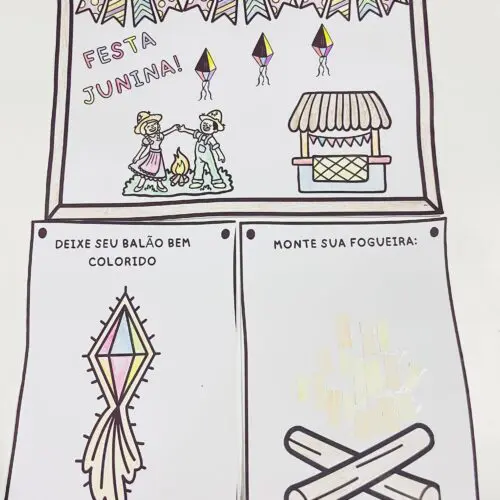 FESTA
JUNINA!
DEIXE SEU BALÃO BEM
COLORIDO
MONTE SUA FOGUEIRA: